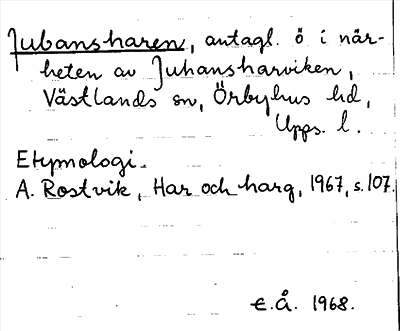 Jubansharen, antagl. ö i när-
heten av Juhansharviken,
Västlands sn, Örbyhus hd,
Upps. l.
Etymologi.
A. Rostvik, Har och harg, 1967, s. 107.
E.Å. 1968.